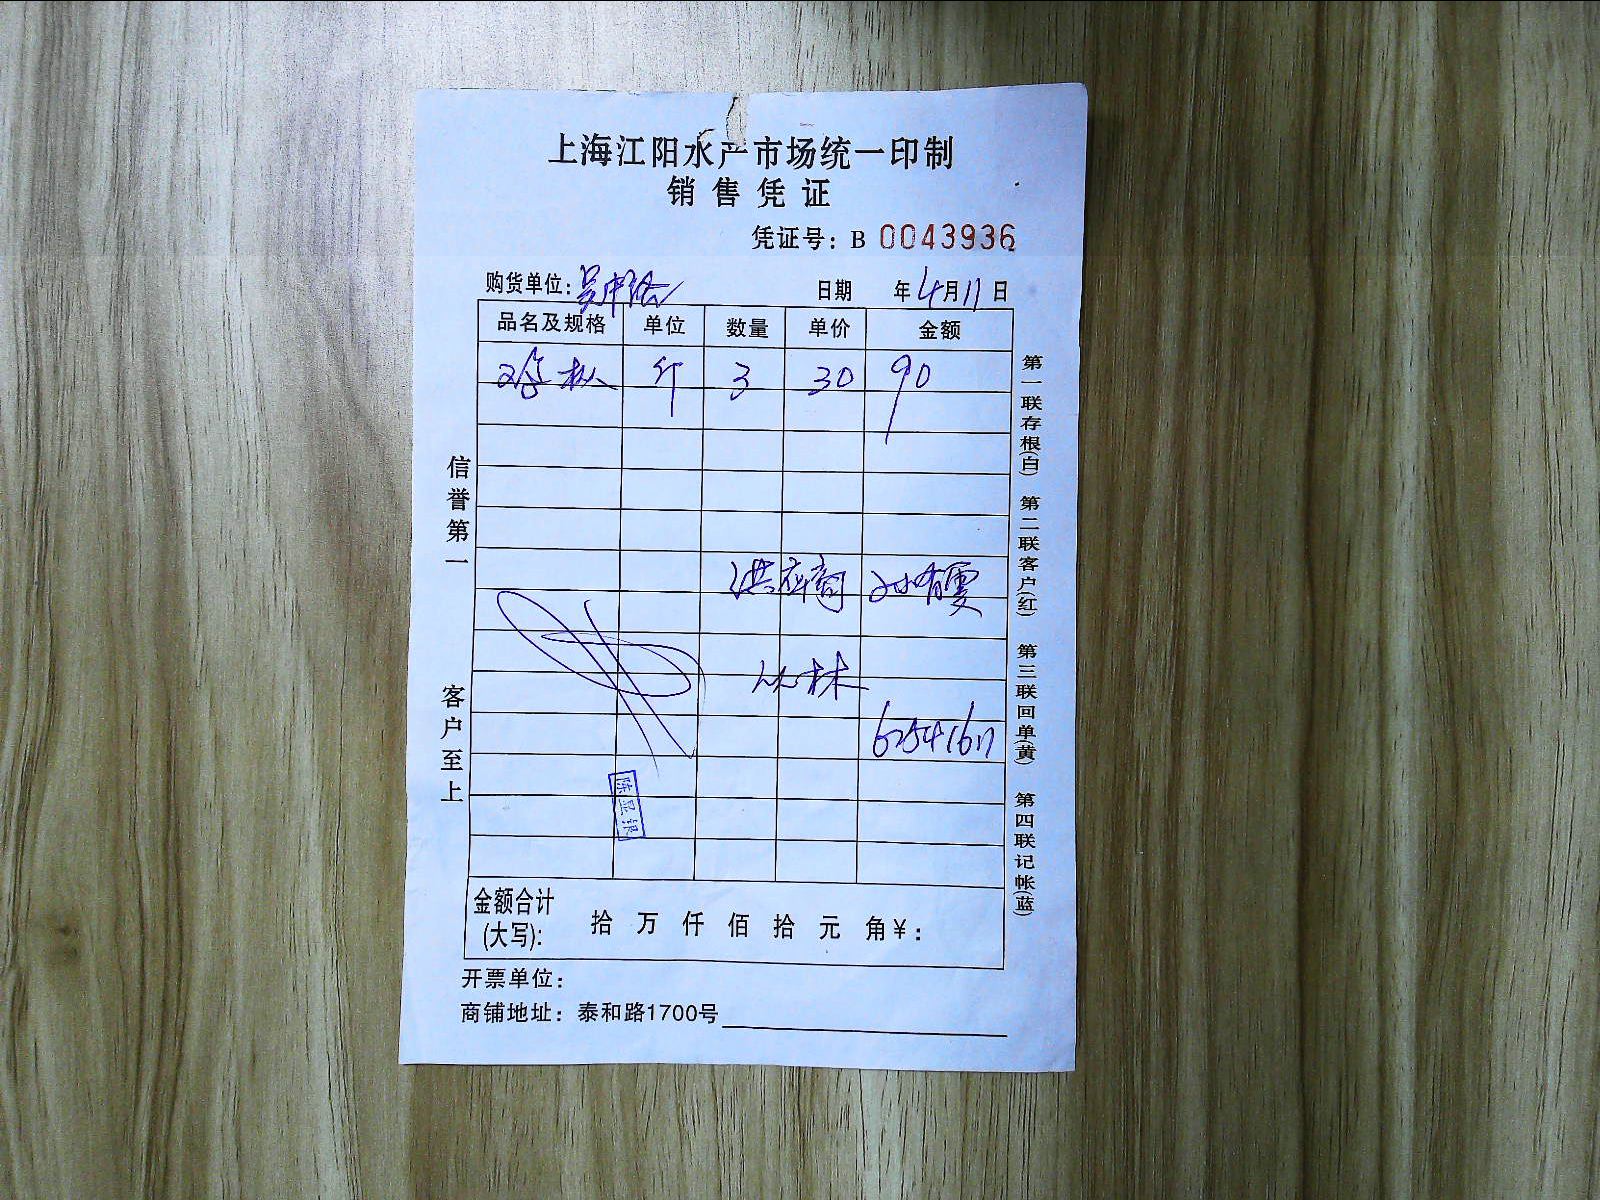 上海江阳水产市场统一印制
销售凭证
凭证号：B 0043936
购货单位：吴中路 日期 年4月11日
品名及规格 单位 数量 单价 金额
鸡枞 斤 3 30 90
供应商 孙有雯
竹林
信誉第一
客户至上
第一联存根(白) 第二联客户(红) 第三联回单(黄) 第四联记帐(蓝)
金额合计(大写)： 拾 万 仟 佰 拾 元 角￥：
开票单位：
商铺地址：泰和路1700号